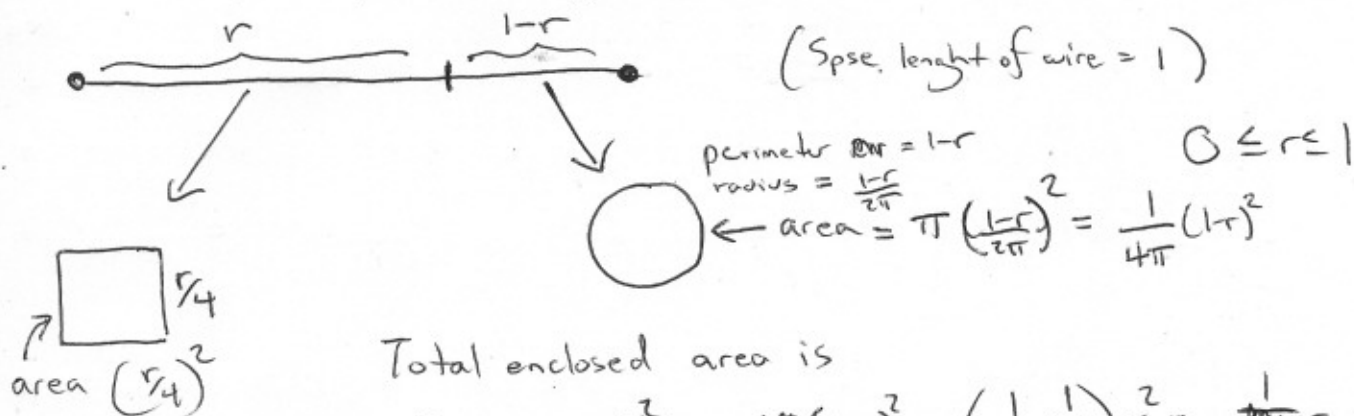 r 1-r
(Spse. lenght of wire = 1)
perimeter = 1-r
0 ≤ r ≤ 1
radius = (1-r)/(2π)
← area = π((1-r)/(2π))² = 1/(4π) (1-r)²
r/4
area (r/4)²
Total enclosed area is